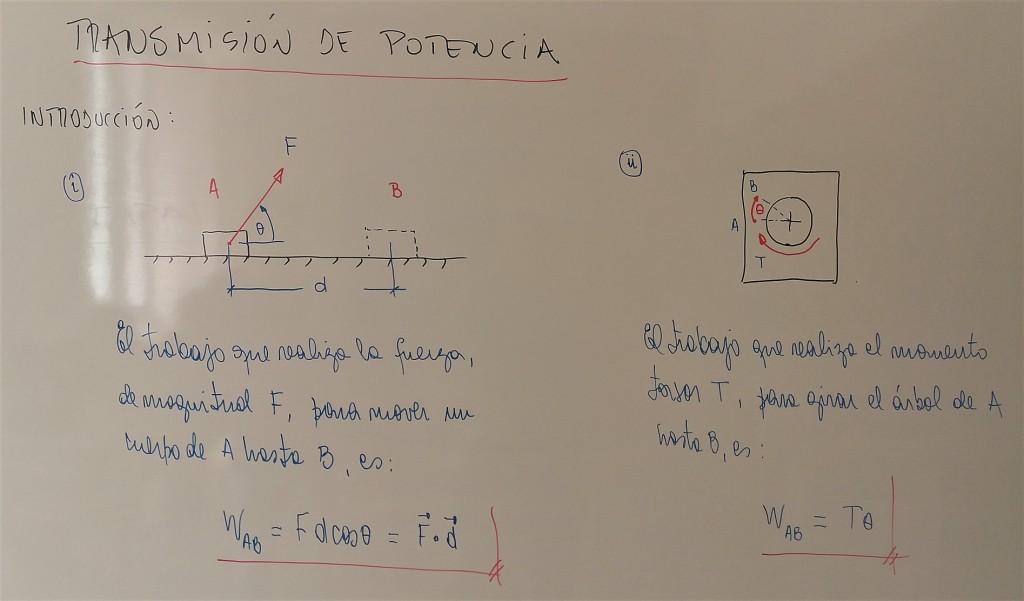 TRANSMISIÓN DE POTENCIA
INTRODUCCIÓN:
i
F
A
B
θ
d
El trabajo que realiza la fuerza,
de magnitud F, para mover un
cuerpo de A hasta B, es:
W_AB = F d cos θ = F⃗ • d⃗
ii
B
θ
A
T
El trabajo que realiza el momento
torsor T, para girar el árbol de A
hasta B, es:
W_AB = Tθ